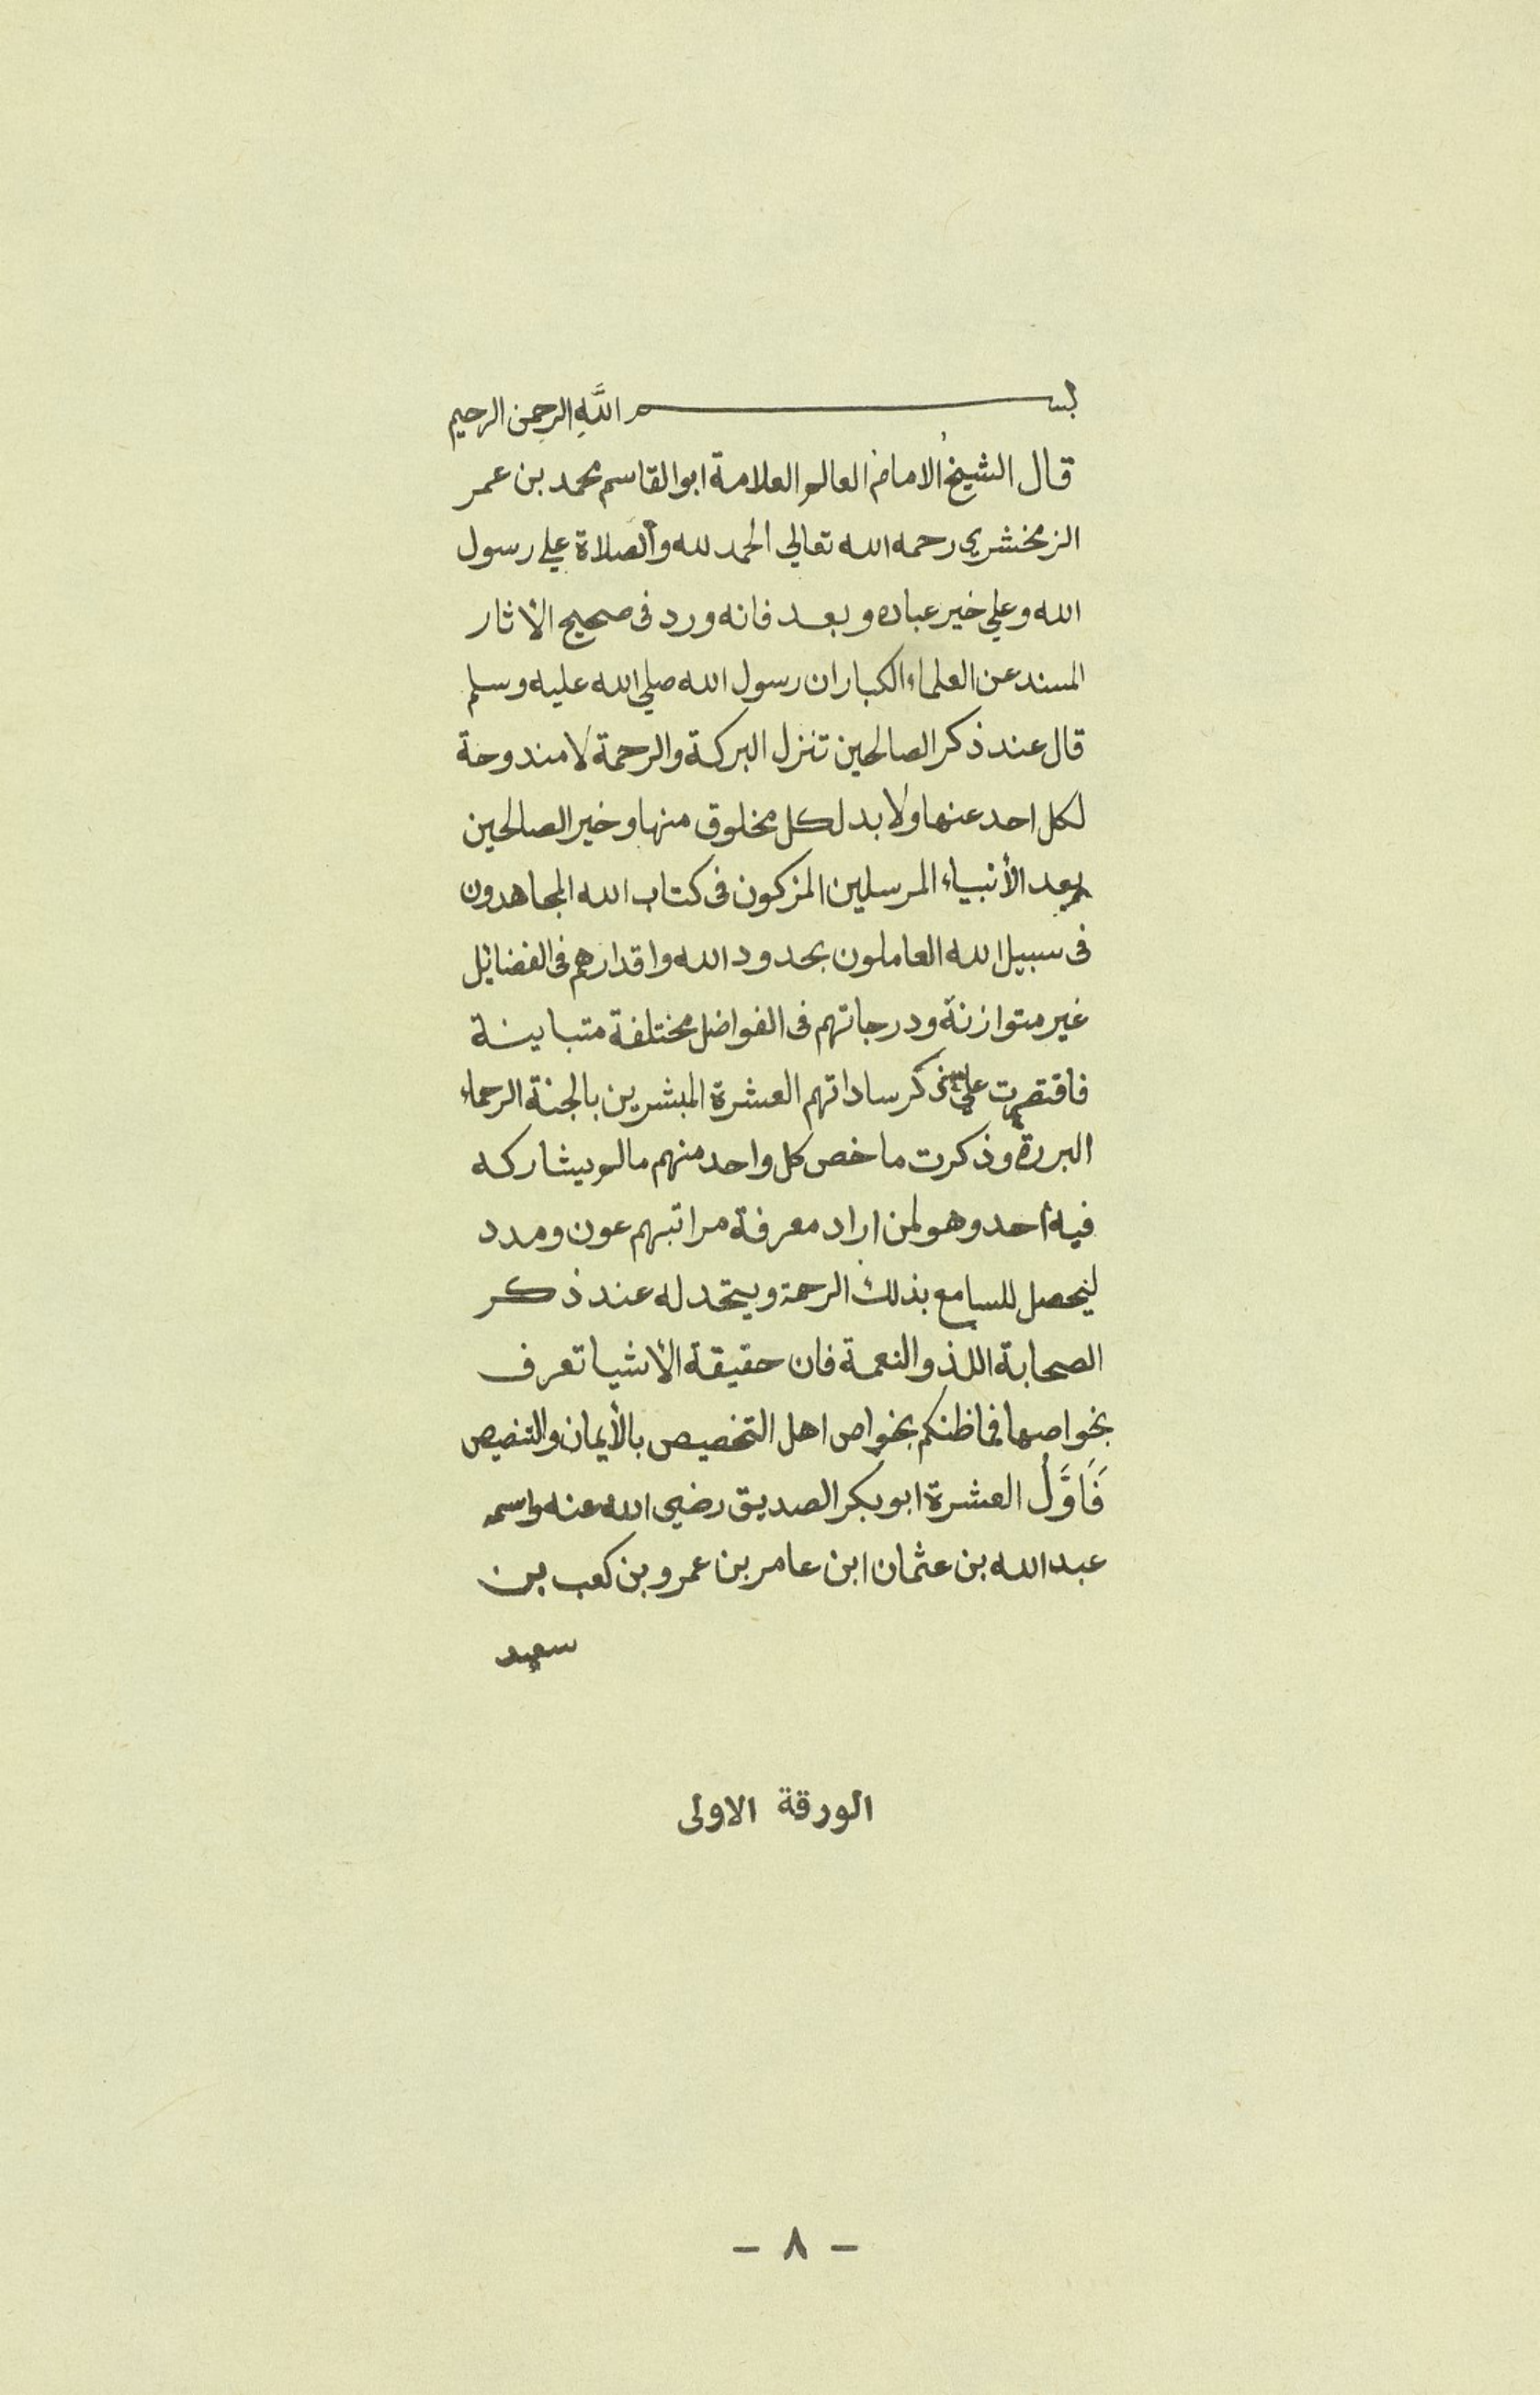 بسم الله الرحمن الرحيم
قال الشيخُ الامام العالم العلامة ابو القاسم محمد بن عمر
الزمخشري رحمه الله تعالي الحمد لله والصلاة علي رسول
الله وعلي خير عباده وبعد فانه ورد في صحيح الاثار
المسند عن العلماء الكبار ان رسول الله صلي الله عليه وسلم
قال عند ذكر الصالحين تنزل البركة والرحمة لا مندوحة
لكل احد عنها ولا بد لكل مخلوق منها وخير الصالحين
بعد الأنبياء المرسلين المزكون في كتاب الله المجاهدون
في سبيل الله العاملون بحدود الله واقدارهم في الفضائل
غير متوازنة ودرجاتهم في الفواضل مختلفة متباينة
فاقتصرت علي ذكر ساداتهم العشرة المبشرين بالجنة الرحماء
البررة وذكرت ما خص كل واحد منهم مالم يشاركه
فيه أحد وهو لمن اراد معرفة مراتبهم عون ومدد
ليحصل للسامع بذلك الرحمة ويتحد له عند ذكر
الصحابة اللذو النعمة فان حقيقة الأشيا تعرف
بخواصها فماظنكم بخواص اهل التخصيص بالأيمان والتنصيص
فَاَوَّلُ العشرة ابو بكر الصديق رضي الله عنه واسمه
عبد الله بن عثمان ابن عامر بن عمرو بن كعب بن
سعيد
الورقة الاولى
- ٨ -